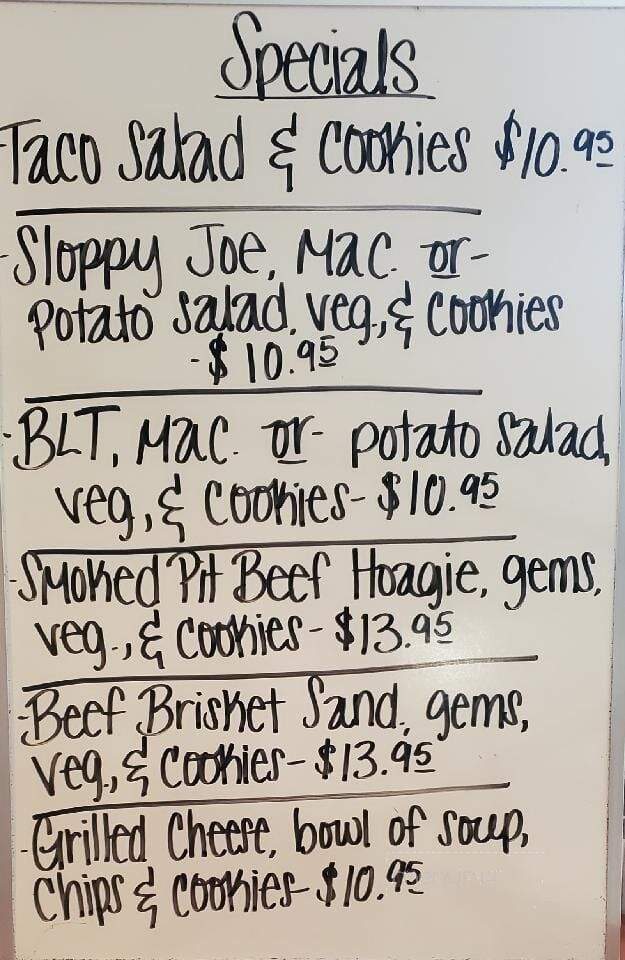 Specials
-Taco Salad & Cookies $10.95
-Sloppy Joe, Mac. or-
potato salad, veg., & cookies
-$10.95
-BLT, Mac. or- potato salad,
veg., & cookies-$10.95
-Smoked Pit Beef Hoagie, gems,
veg., & cookies-$13.95
-Beef Brisket Sand, gems,
veg., & cookies-$13.95
-Grilled Cheese, bowl of soup,
chips & cookies-$10.95